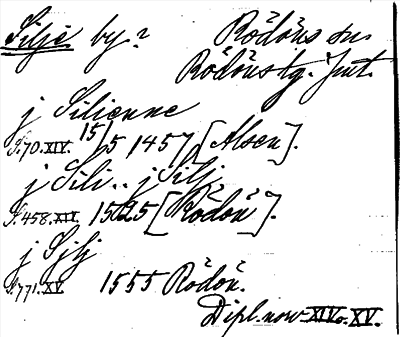 Silje by? Rödöns sn.
Rödöns tg. Jmt.
j Silienne
S.70.XIV. 15/5 1457 [Alsen].
j Sili.. j Silj
S.458.XIV. 1525 [Rödön].
j Sjlj
S.771.XV. 1555 Rödön.
Dipl. now. XIV o. XV.